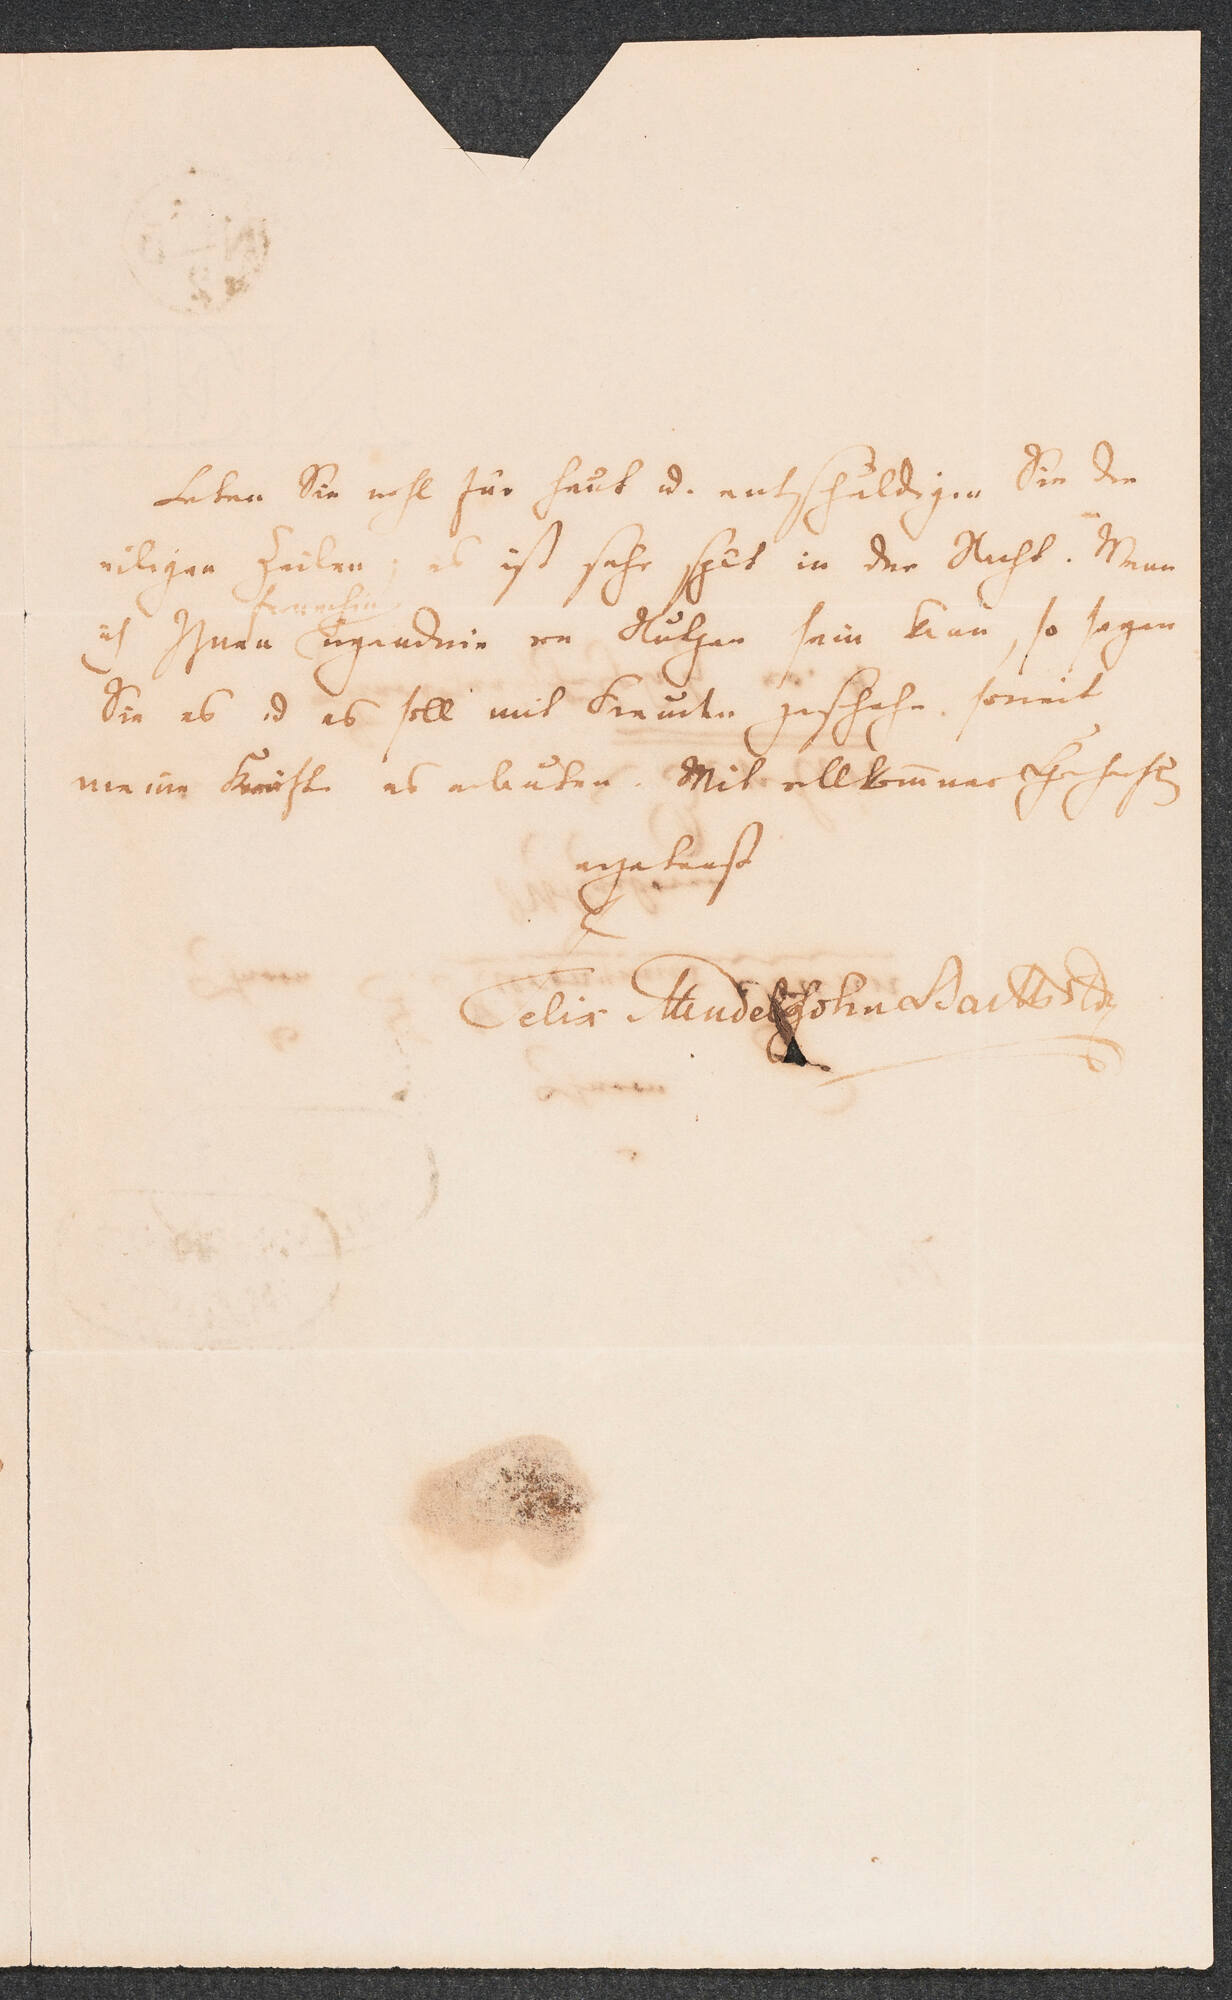 Leben Sie wohl für heut u. entschuldigen Sie die
eiligen Zeilen; es ist sehr spät in der Nacht. Wenn
fernerhin
ich Ihnen irgendwie von Nutzen sein kann, so sagen
Sie es u es soll mit Freuden geschehn soweit
meine Kräfte es erlauben. Mit vollkommner Hochachtg
ergebenst
Felix Mendelssohn Bartholdy